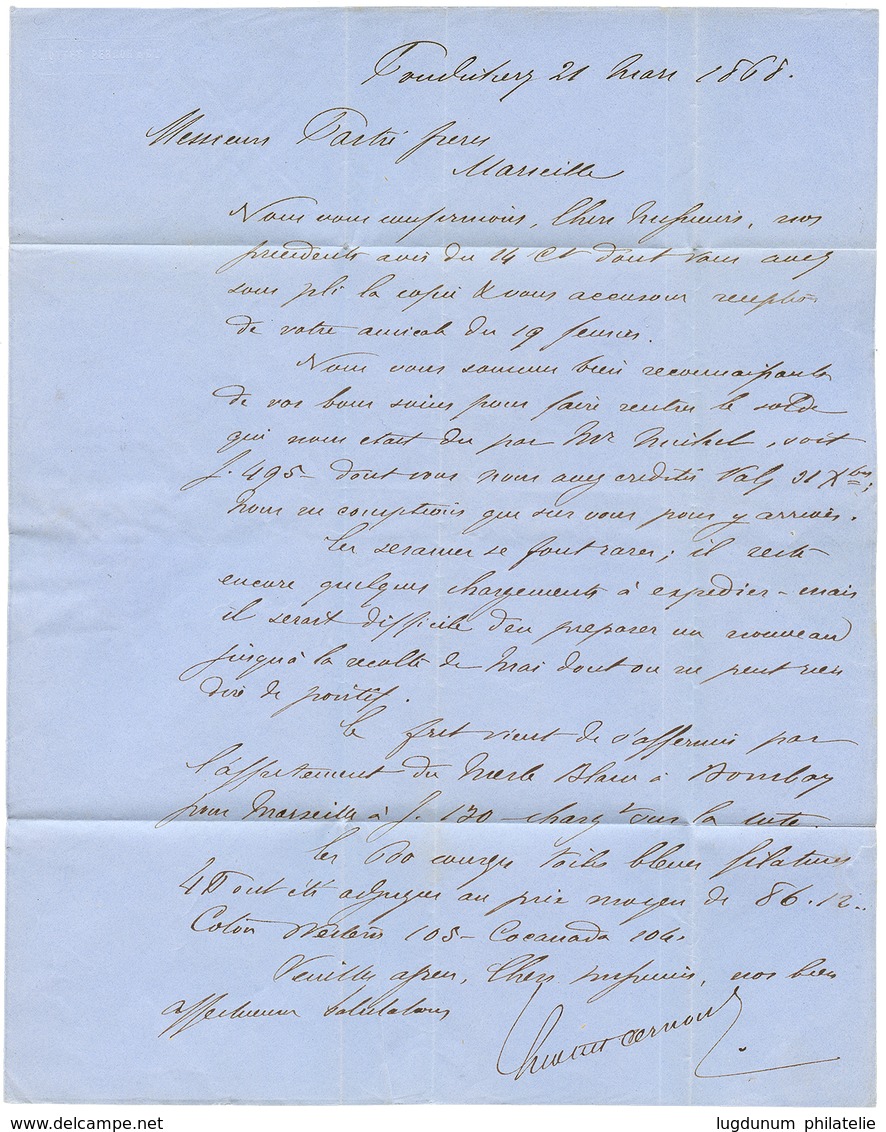 Pondichery 21 Mars 1868.
Messieurs Pastré frères
Marseille
Nous vous confirmons, Chers Messieurs, nos
précédents avis du 14 Ct dont vous avez
sous pli la copie & vous accusons reception
de votre amicale du 19 fevrier.
Nous vous sommes bien reconnaissants
de vos bons soins pour faire rentrer le solde
qui nous était du par Mr Michel, soit
f. 495 - dont vous nous avez crédités Val. 31 Xbre;
nous ne comptions que sur vous pour y arriver.
Les sesames se font rares; il reste
encore quelques chargements à expedier - mais
il serait difficile d'en preparer un nouveau
jusqu'à la recolte de Mai dont on ne peut rien
dire de positif.
Le fret vient de s'affermir par
l'affretement du Merle Blanc à Bombay
pour Marseille à f. 130 - chargt sur la cote.
Les 600 courges toiles bleues filatures
ont été adjugées au prix moyen de 86.12..
Coton Western 105 - Cocanada 104.
Veuillez agréer, Chers Messieurs, nos bien
affectueuses salutations
www.delcampe.net
lugdunum philatelie